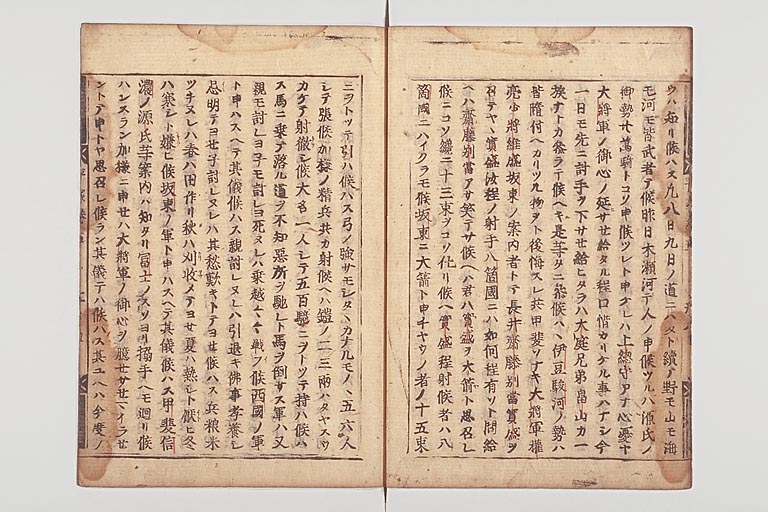 ウハ知リ候ハス凡八日九日ノ道ニハタト續ノ野モ山モ海
モ河モ皆武者テ候昨日木瀬河テ人ノ申候ツルハ源氏ノ
御勢廿萬騎トコソ申候ツレト申ケレハ上総守アナ心憂ヤ
大將軍ノ御心ノ延サセ給タル程口惜カリケル事ハナシ今
一日モ先ニ討手ヲ下サセ給ヒタラハ大庭兄弟畠山カ一
族ナトカ参ラテ候ヘキ是等タニ参候ハヽ伊豆駿河ノ勢ハ
皆隨付ヘカリツル物ヲト後悔スレ共甲斐ソナキ大將軍權
亮少將維盛坂東ノ案内者トテ長井齋藤別當實盛ヲ
召テヤヽ實盛汝程ノ射手八箇國ニハ如何程有ソト問給
ヘハ齋藤別當アサ笑テサ候ヘハ君ハ實盛ヲ大箭ト思召レ
候ニコソ纔ニ十三束ヲコソ仕リ候ヘ實盛程射候者ハ八
箇國ニハイクラモ候坂東ニ大箭ト申チヤウノ者ノ十五束
ニヲトツテ引ハ候ハス弓ノ強サモシタヽカナルモノヽ五六人
シテ張候加樣ノ精兵共カ射候ヘハ鎧ノ二三兩ハタヤスウ
カケテ射徹シ候大名一人シテ五百騎ニヲトツテ持ハ候ハ
ス馬ニ乗テ落ル道ヲ不知惡所ヲ馳レト馬ヲ倒サス軍ハ又
親モ討レヨ子モ討レヨ死ヌレハ乗越ヘヽヽ戰フ候西國ノ軍
ト申ハスヘテ其儀候ハス親討レヌレハ引退キ佛事孝養シ
忌明テヨせ子討レヌレハ其愁歎キトテヨせ候ハス兵粮米
ツキヌレハ春ハ田作リ秋ハ刈收メテヨせ夏ハ熱シト厭ヒ冬
ハ寒シト嫌ヒ候坂東ノ軍ト申ハスヘテ其儀候ハス甲斐信
濃ノ源氏等案内ハ知タリ冨士ノスソヨリ搦手ヘモ廻リ候
ハンスラン加樣ニ申せハ大將軍ノ御心ヲ臆せサせマイラせ
ントテ申トヤ思召レ候ラン其儀テハ候ハス其ユヘハ今度ノ